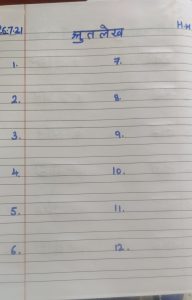 26.7.21 श्रुतलेख H.W
1. 7.
2. 8.
3. 9.
4. 10.
5. 11.
6. 12.